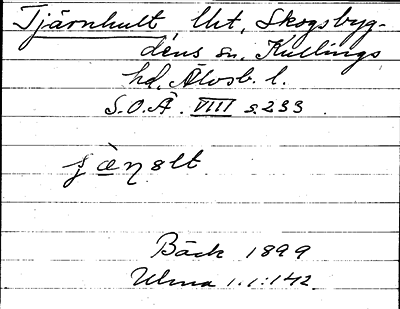 Tjärnhult, lht, Skogsbyg-
dens sn, Kullings
hd, Älvsb. l.
S.O.Ä. VIII s. 233
Bäck 1899
Ulma 1.1:142.